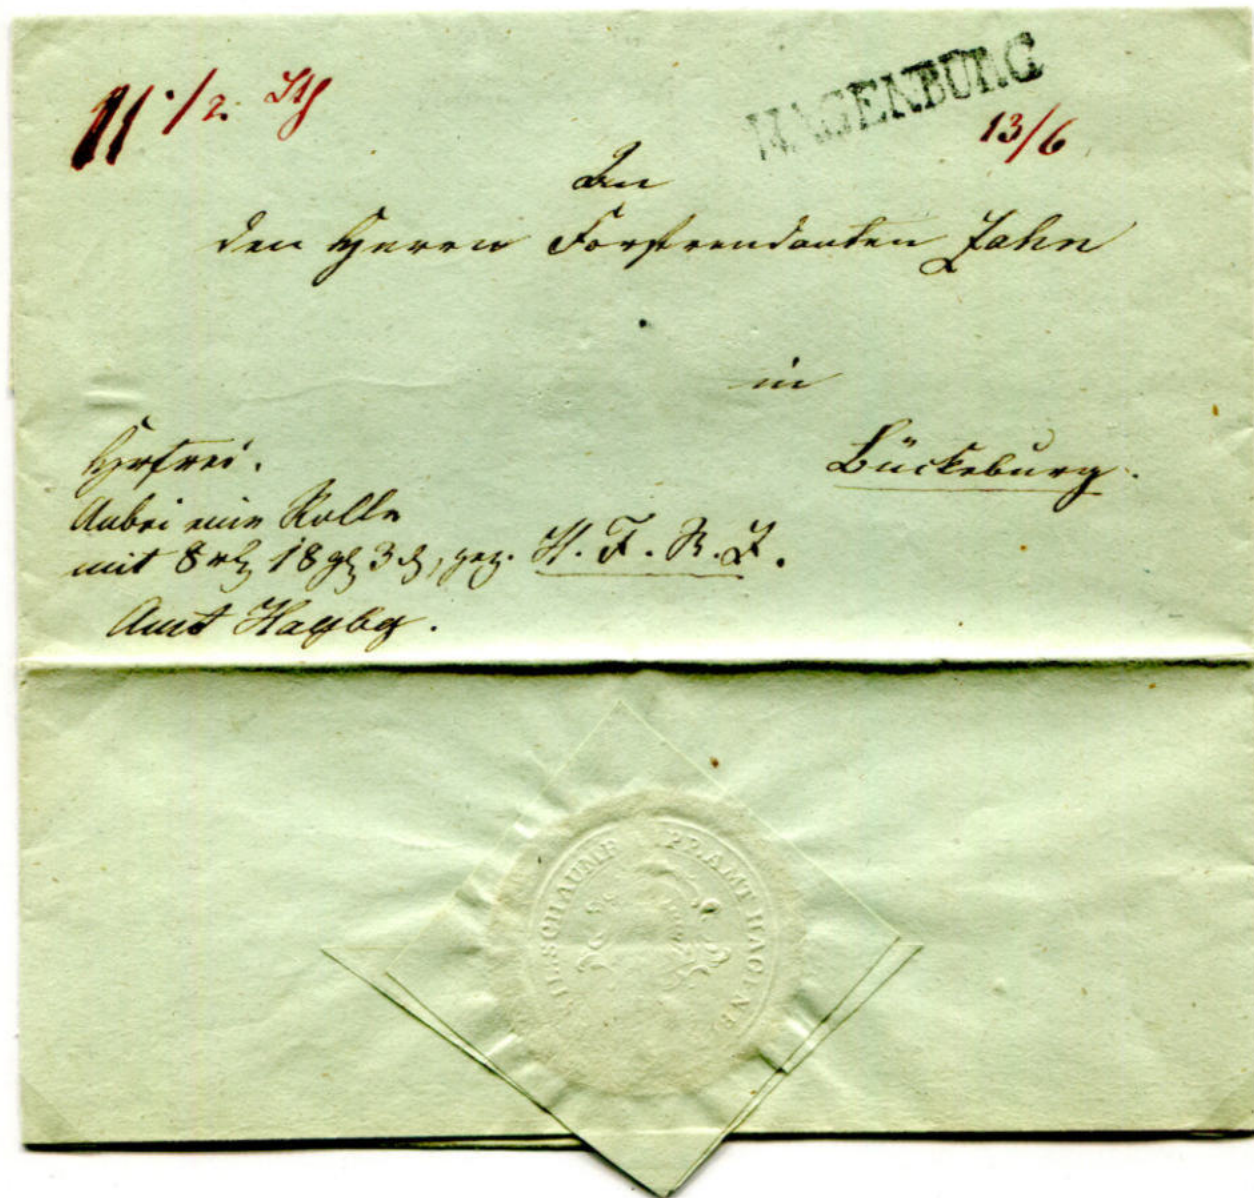 11 1/2 Lth
HAGENBURG
13/6
An
den Herrn Forstrendanten Zahn
in
Bückeburg.
Hrfrei.
Anbei eine Rolle
mit 8 rth 18 gl 3 d, gez. H. F. R. Z.
Amt Hagbg.
SCHAUMB LIPP. AMT HAGENB